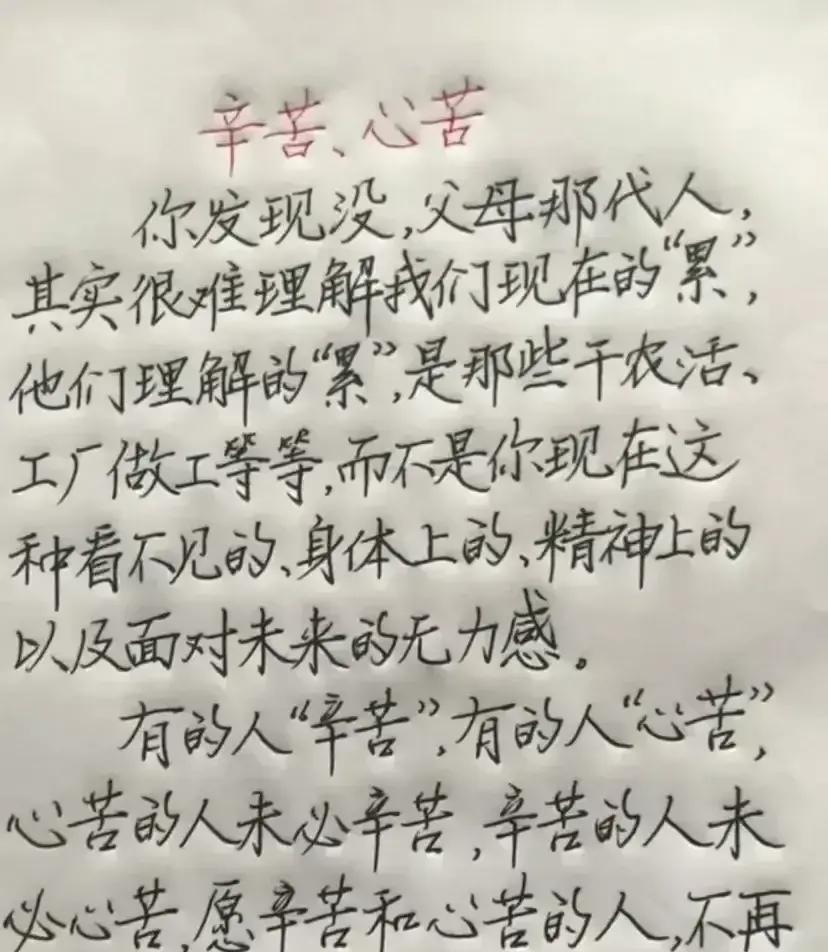 辛苦、心苦
你发现没,父母那代人,
其实很难理解我们现在的“累”,
他们理解的“累”,是那些干农活、
工厂做工等等,而不是你现在这
种看不见的、身体上的、精神上的
以及面对未来的无力感。
有的人“辛苦”,有的人“心苦”,
心苦的人未必辛苦,辛苦的人未
必心苦,愿辛苦和心苦的人,不再